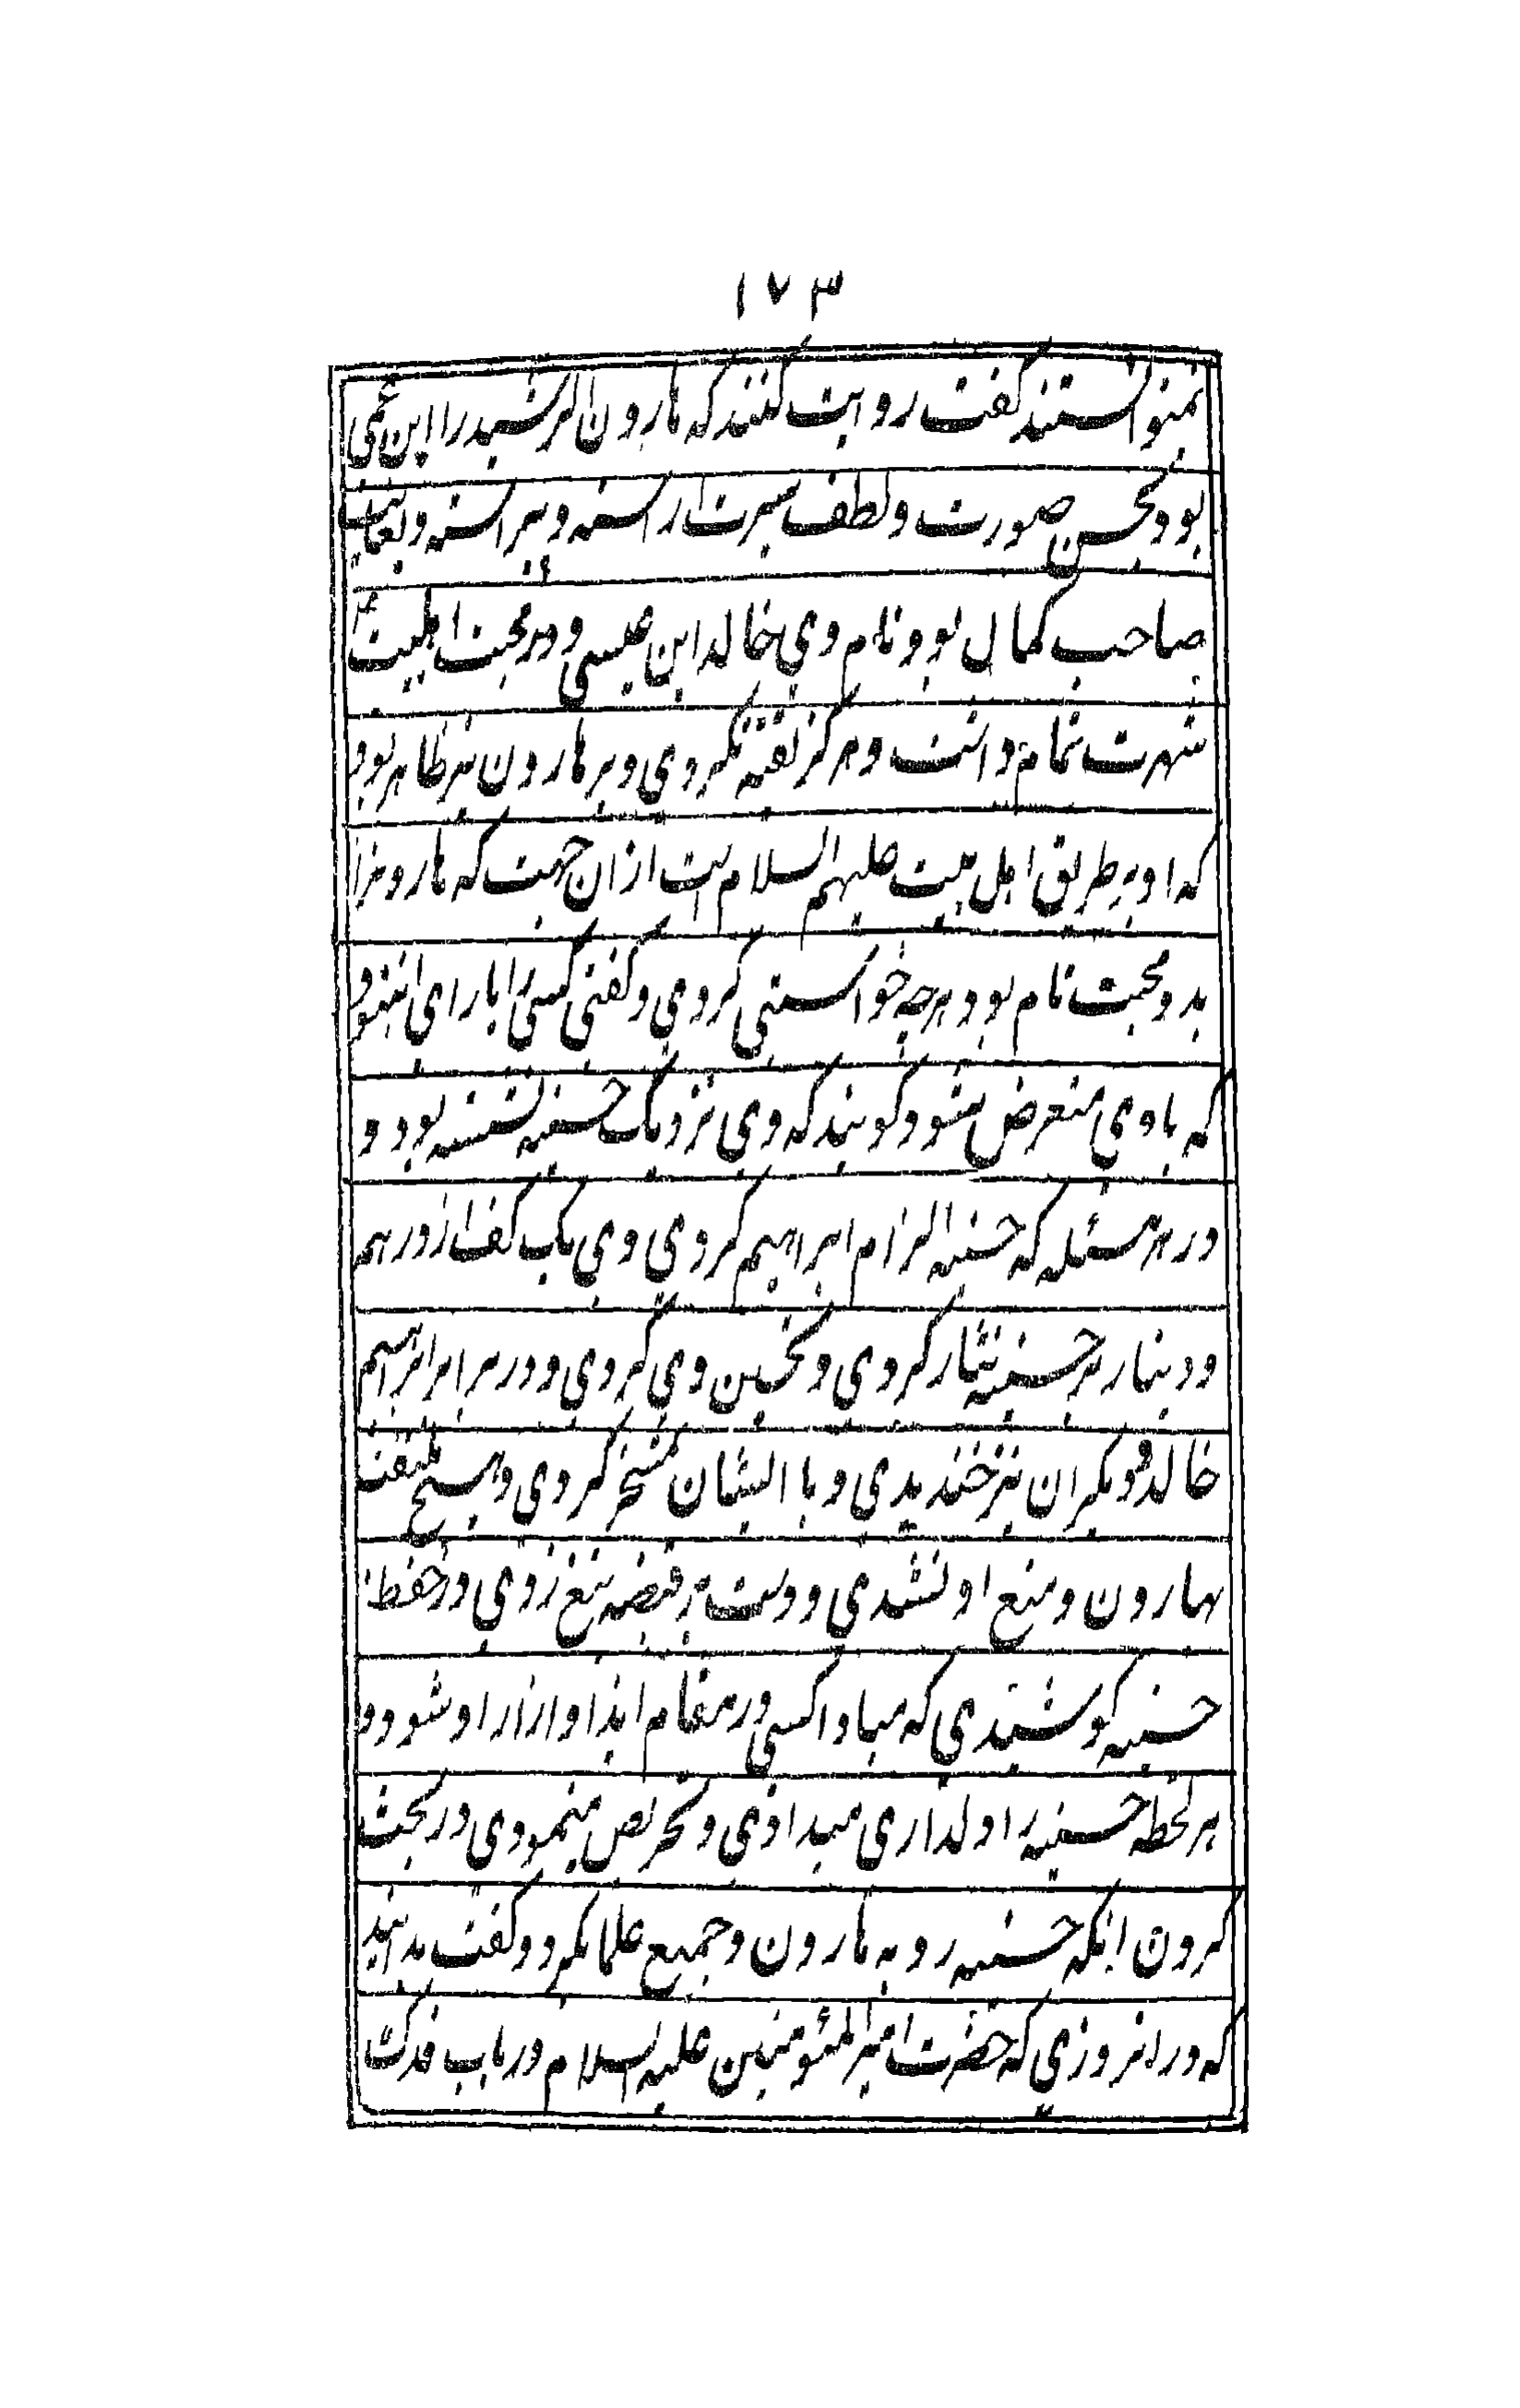 ۱۷۳
نمیتوانستند گفت روایت کنند که هارون الرشید را ابن عمی
بود بحسن صورت و لطف سیرت اراسته و پیراسته و بغایت
صاحب کمال بود و نام وی خالد ابن عیسی و در محبت اهلبیت
شهرت تمام داشت و هرگز تقیه نکردی و بر هارون نیز ظاهر بود
که او بر طریق اهل بیت علیهم السلام است از ان جهت که هارونرا
بد و محبت تام بود هرچه خواستی کردی و گفتی کسی را یارای آن نبود
که با وی متعرض شود گویند که وی نزدیک حسنیه نشسته بود و
در هر مسئله که حسنیه الزام ابراهیم کردی وی یک کف از درهم
و دینار بر حسنیه نثار کردی و تحسین وی کردی و در برابر ابراهیم
خالد و دیگران نیز خندیدی و با ایشان تمسخر کردی و هیچ ملتفت
بهارون و منع او نشدی و دست بر قبضه تیغ زدی و در حفظ
حسنیه کوشیدی که مبادا کسی در مقام ایذا و ازار او شود و
هر لحظه حسنیه را دلداری میدادی و تحریص مینمودی در بحث
کردن انکه حسنیه رو به هارون و جمیع علما کرد و گفت بدانید
که در انروزی که حضرت امیر المئومنین علیه السلام در باب فدک